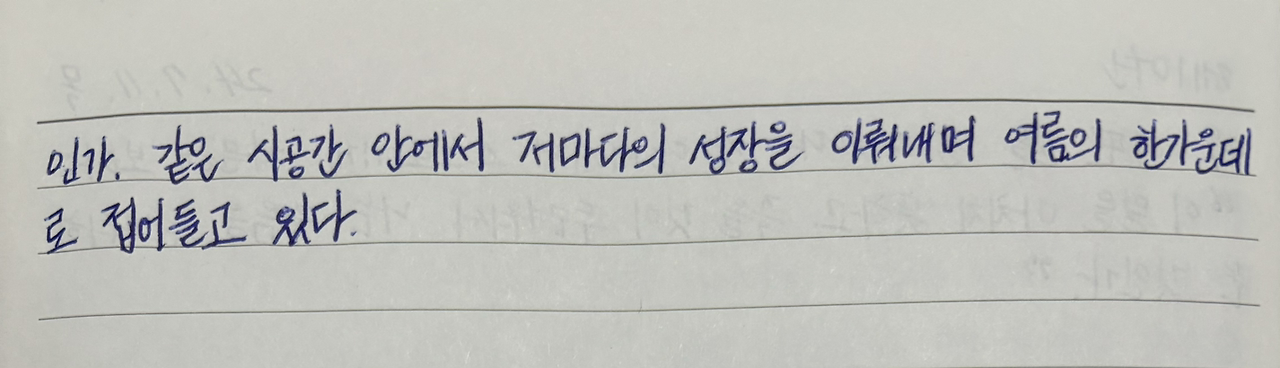 인가. 같은 시공간 안에서 저마다의 성장을 이뤄내며 여름의 한가운데
로 접어들고 있다.